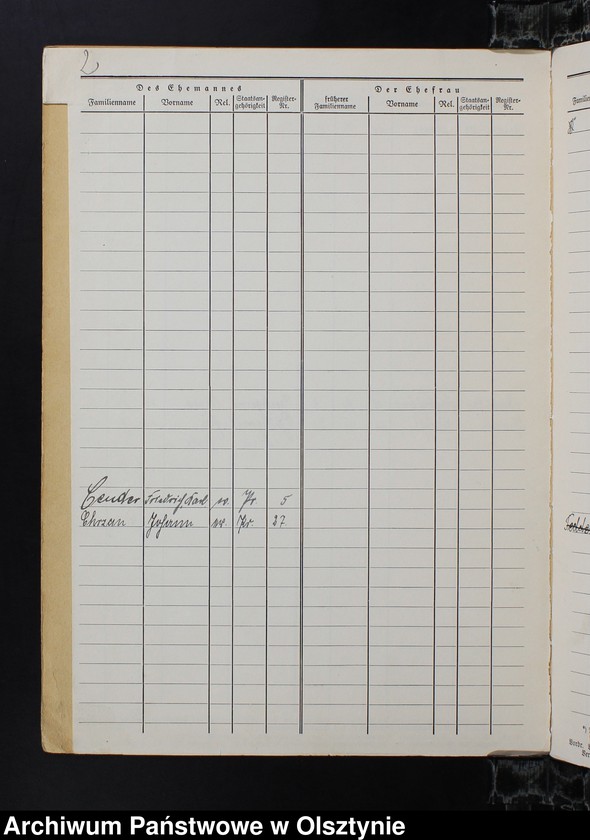 2
Des Ehemannes Der Ehefrau
Familienname Vorname Rel. Staatsan-gehörigkeit Register-Nr. früherer Familienname Vorname Rel. Staatsan-gehörigkeit Register-Nr.
Cender Friedrich Karl ev. Pr. 5
Chrzan Johann ev. Pr. 27
Archiwum Państwowe w Olsztynie